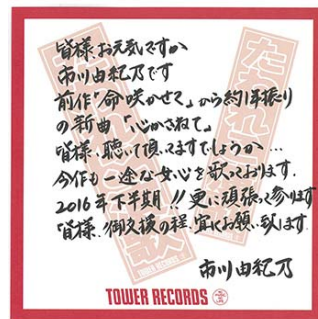 皆様お元気ですか
市川由紀乃です
前作「命咲かせて」から約1年振り
の新曲「心かさねて」
皆様、聴いて頂いてますでしょうか…
今作も一途な女心を歌っております。
2016年下半期!!更に頑張って参ります
皆様、御支援の程、宜しくお願い致します。
市川由紀乃
TOWER RECORDS